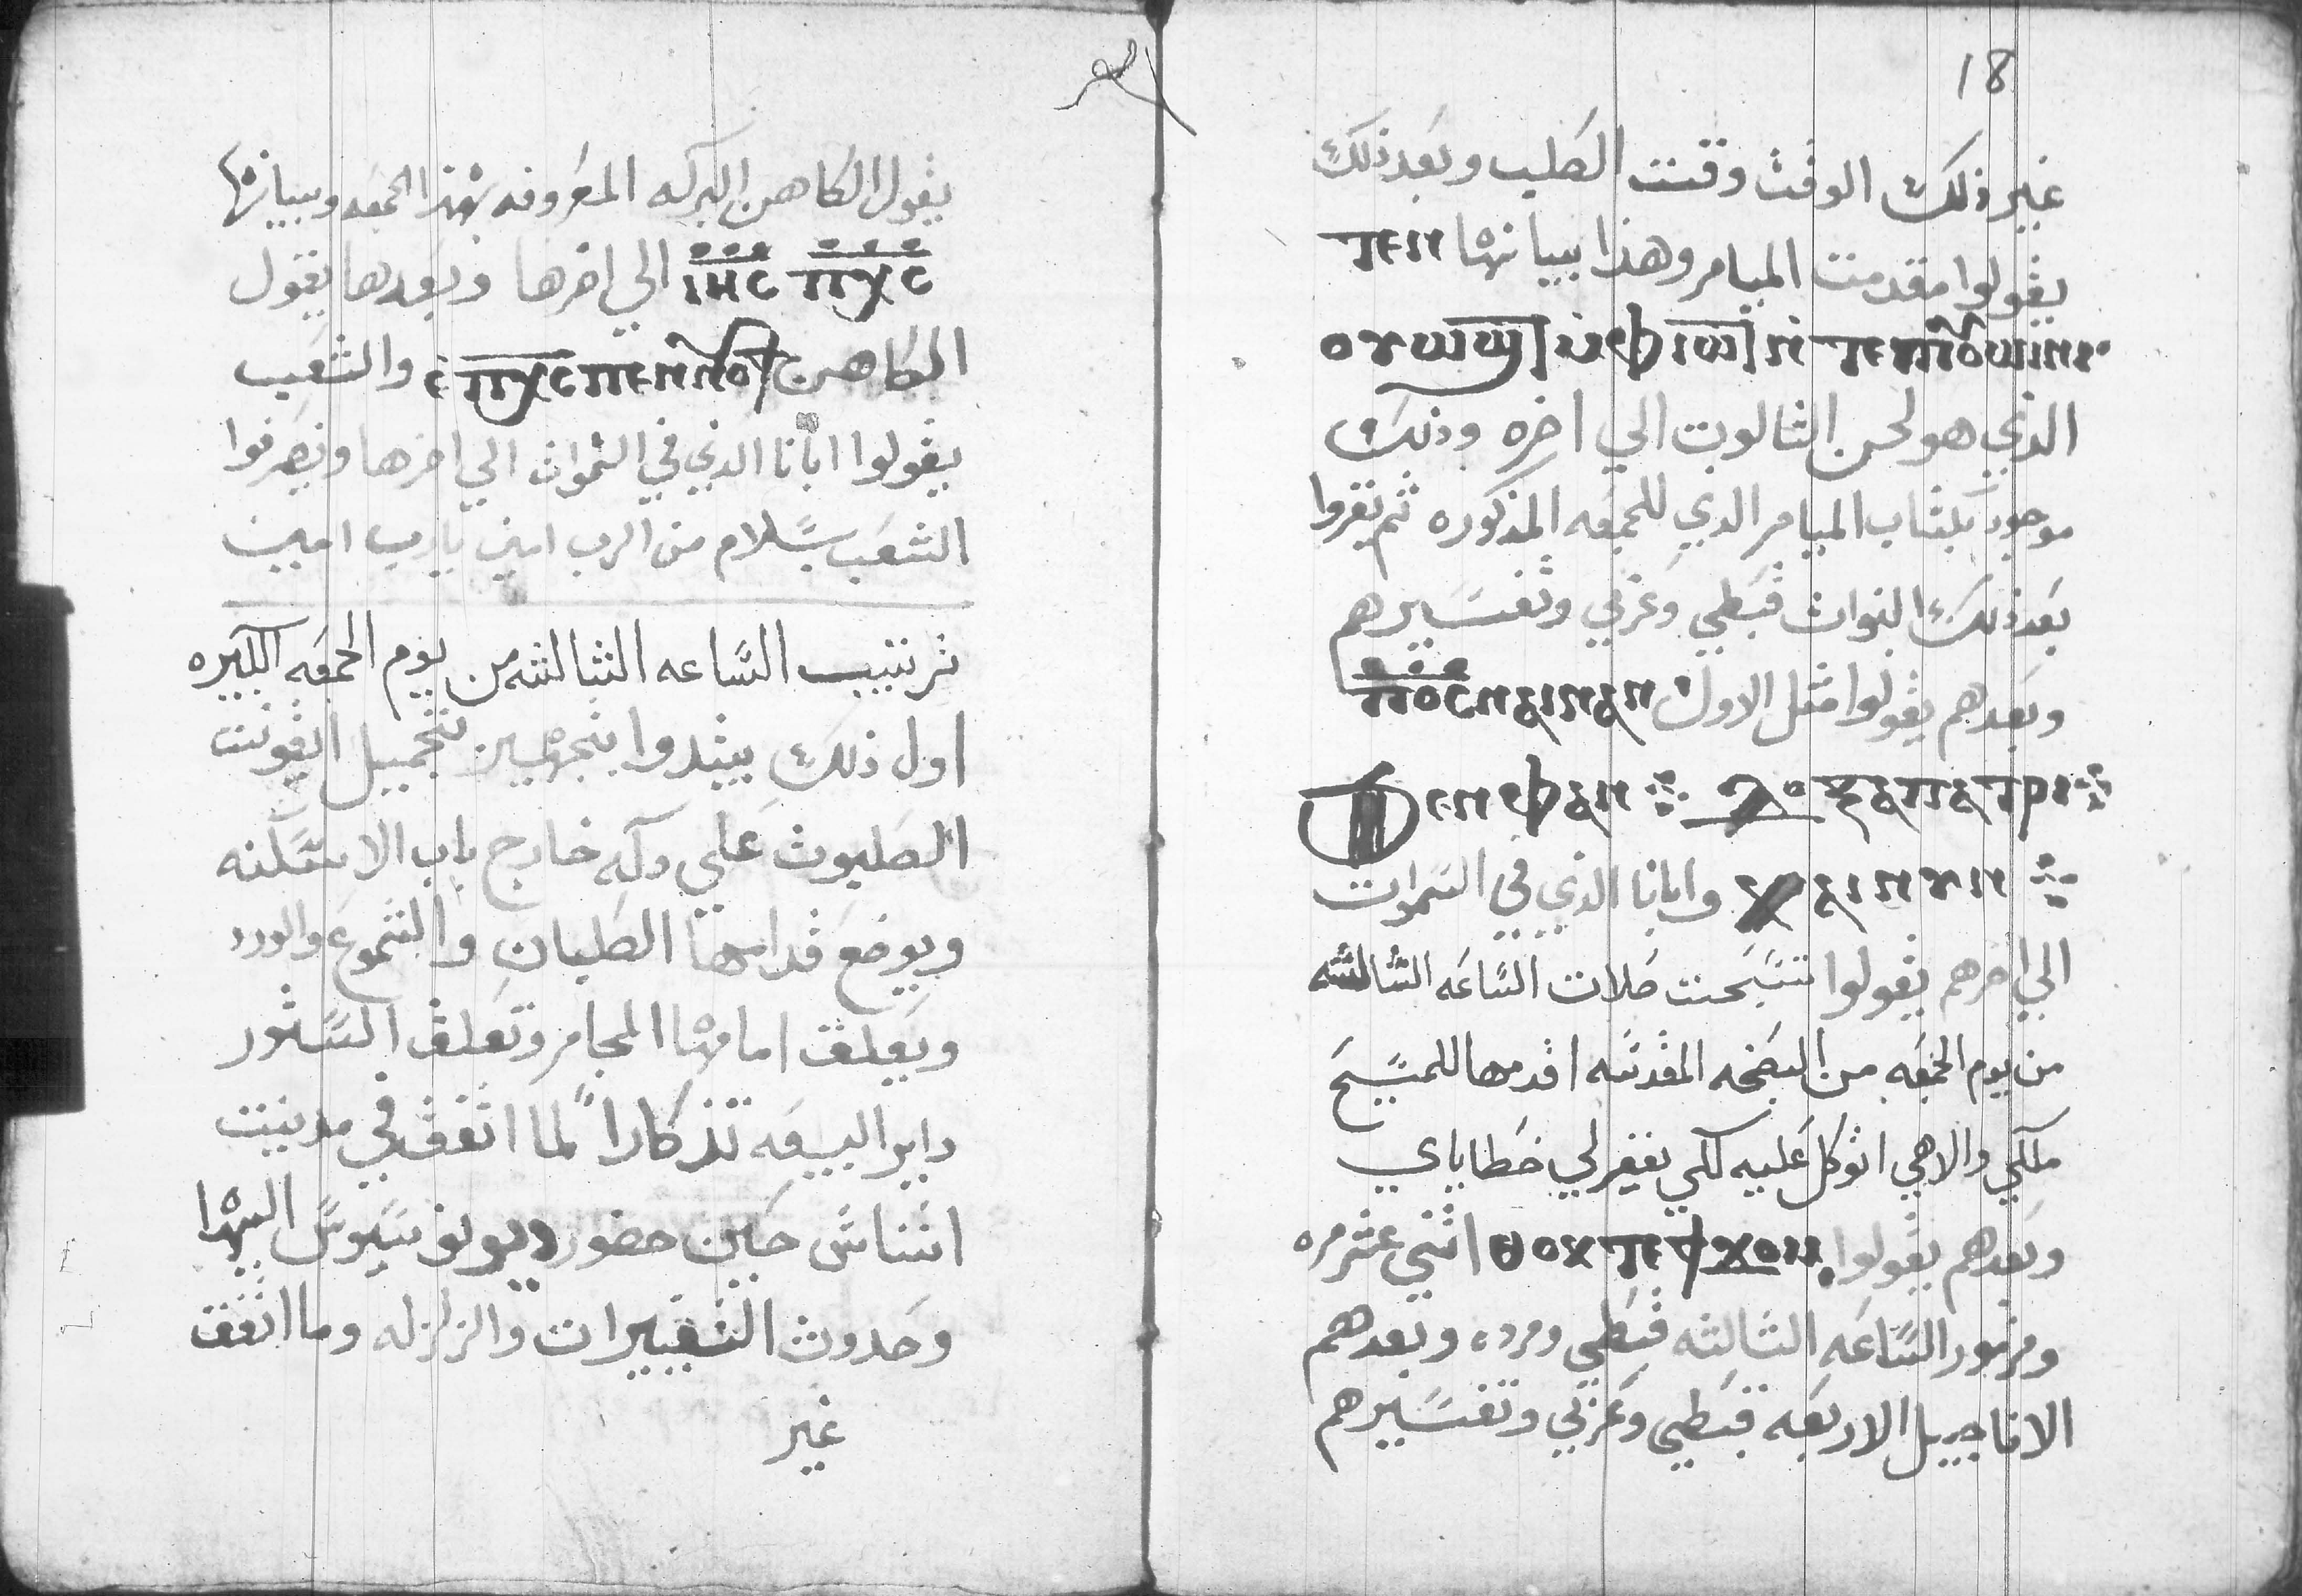 يقول الكاهن البركه المعروفه بهذا الجمعه وبيانها
ⲓⲏⲥ ⲡⲭⲥ الي اخرها وبعدها يقول
الكاهن ⲡⲭⲥ ⲡⲉⲛⲛⲟⲩϯ والشعب
يقولوا ابانا الذي في السموات الي اخرها وتصرفوا
الشعب بسلام من الرب امين يارب امين
ترتيب الساعه الثالثه من يوم الجمعه الكبيره
اول ذلك يبتدوا بتجهيز تجميل ايقونت
الصلبوت علي دكه خارج باب الاسكنه
ويوضع قدامها الصلبان والشموع والورد
ويعلق امامها المجامر وتعلق الستور
داير البيعه تذكاراً لما اتفق في مدينت
اتناس حين حضور ديونوسيوس اليها
وحدوث التغييرات والزلزله وما اتفق
غير
18
غير ذلك الوقت وقت الصلب وبعد ذلك
يقولوا مقدمت الميامر وهذا بيانها ⲧⲉⲛ
ⲟⲩⲱϣⲧ ⲙ̀ⲫⲓⲱⲧ ⲛ̀ⲧⲉ ⲡⲓⲟⲩⲱⲓⲛⲓ
الذي هو لحن الثالوت الي اخره وذلك
موجود بكتاب الميامر الذي للجمعه المذكوره ثم تقروا
بعد ذلك النبوات قبطي وعربي وتفسيرهم
وبعدهم يقولوا مثل الاول ⲡⲟⲥ ⲛⲁⲓ ⲛⲁⲛ
ϯⲉⲛⲉⲫⲁⲛ ⳓⲁⲡⲁⲧⲣⲓ
ⲭⲁⲓⲛⲩⲛ وابانا الذي في السموات
الي اخرهم يقولوا تسبحت صلات الساعه الثالثه
من يوم الجمعه من البصخه المقدسه اقدمها للمسيح
ملكي والاهي اتوكل عليه لكي يغفر لي خطاياي
وبعدهم يقولوا ⲑⲟⲕ ⲧⲉ ϯϫⲟⲙ اثني عشر مره
ومزمور الساعه الثالثه قبطي ومرده وبعدهم
الاناجيل الاربعه قبطي وعربي وتفسيرهم